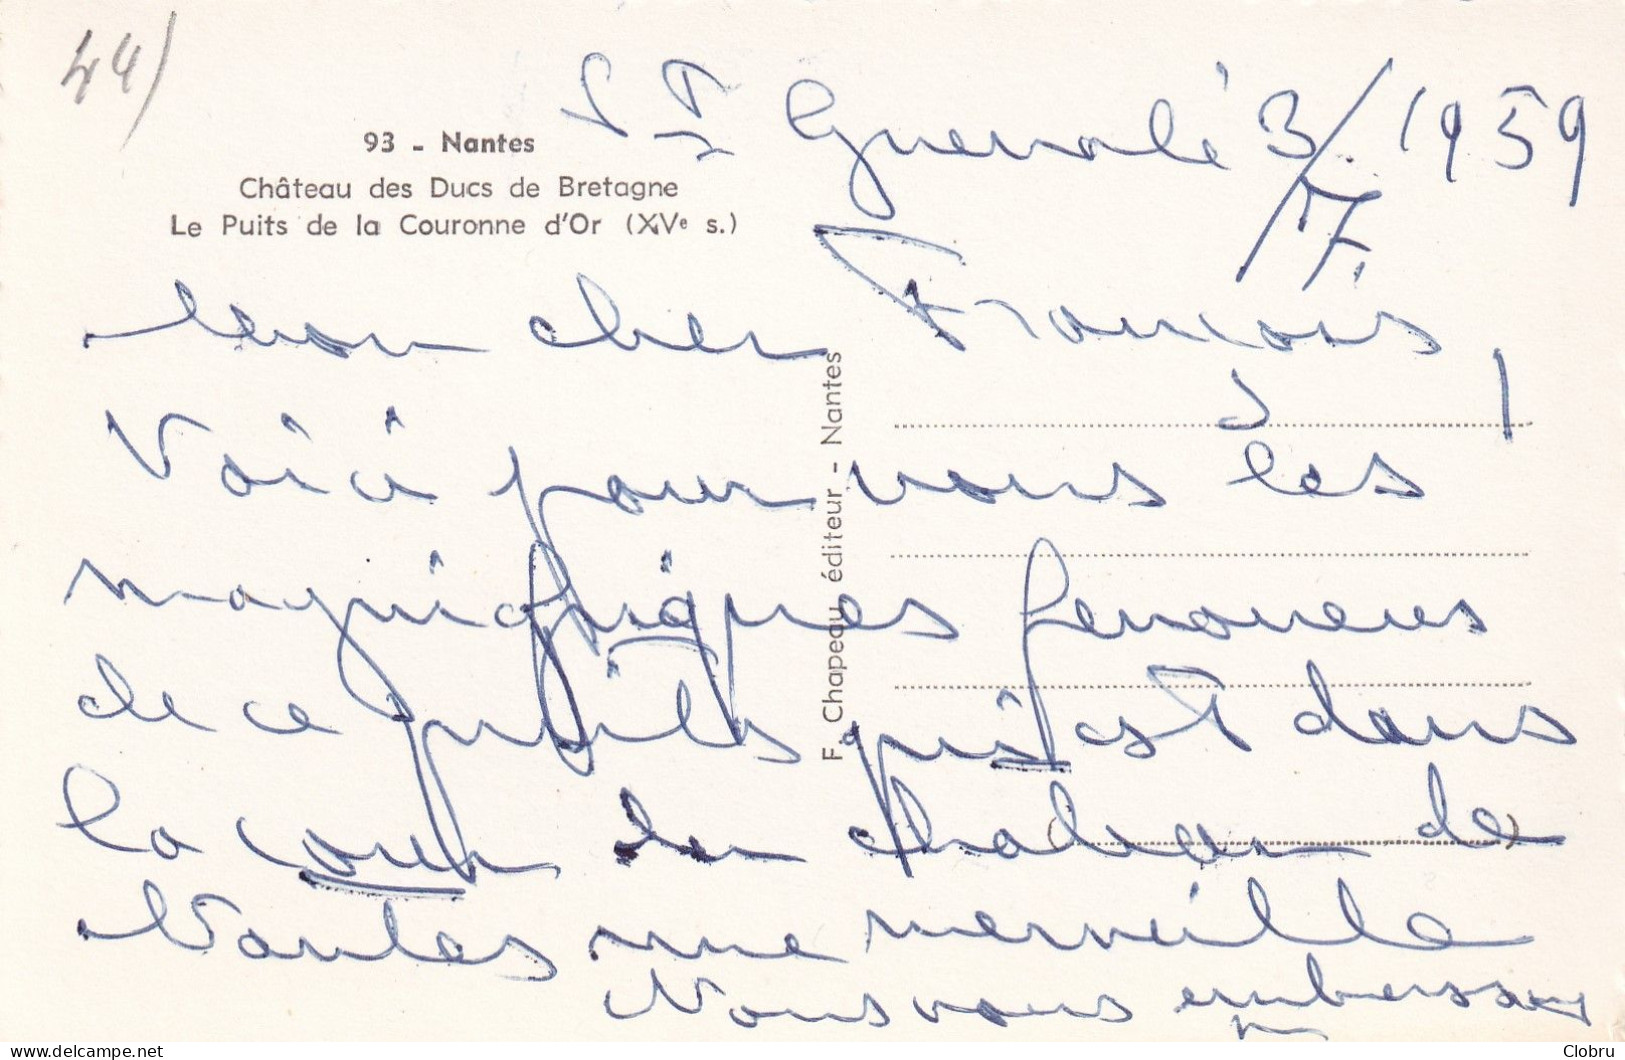 44)
St Guénolé 3/7. 1959
93 - Nantes
Château des Ducs de Bretagne
Le Puits de la Couronne d'Or (XVe s.)
Mon cher François,
Voici pour vous les
magnifiques ferroneries
de ce puits qui est dans
la cour du chateau de
Nantes une merveille
Nous vous embrassons
F. Chapeau éditeur - Nantes
delcampe.net
Clobru